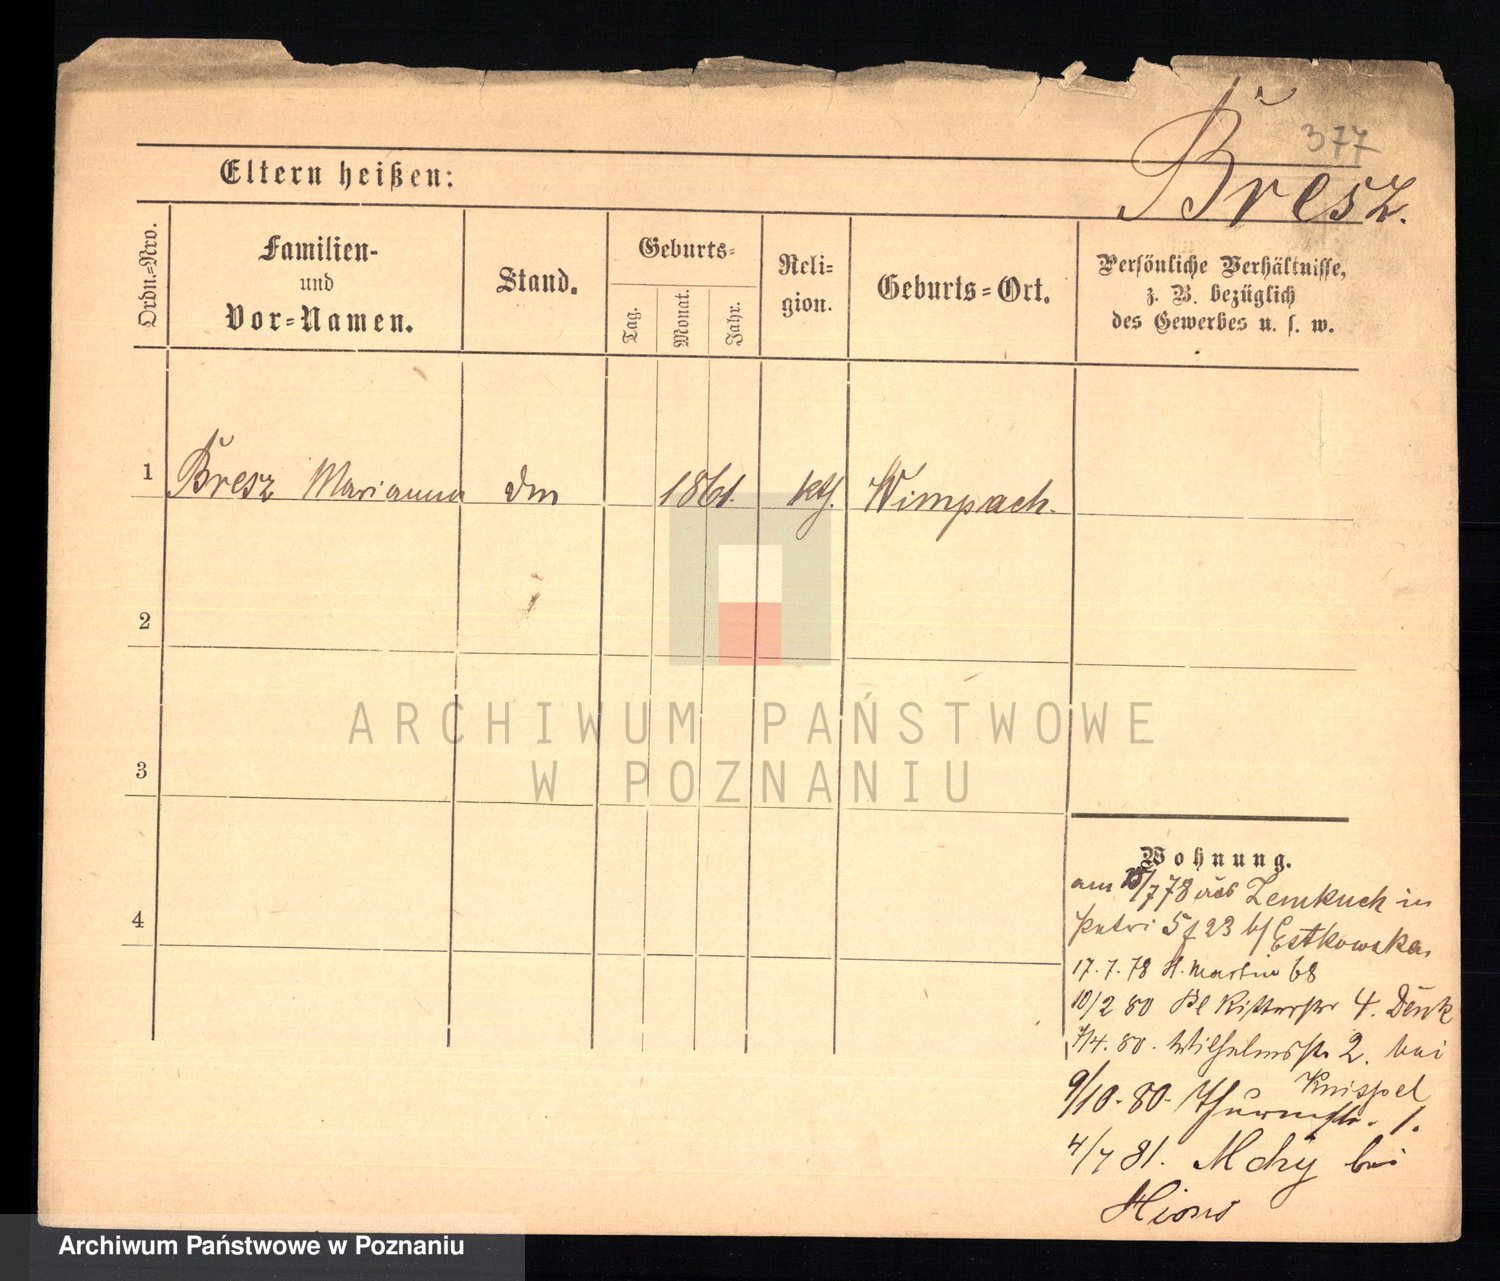 377
Bresz.
Eltern heißen:
Ordn.=Nro.
Familien-
und
Vor=Namen.
Stand.
Geburts=
Tag.
Monat.
Jahr.
Reli-
gion.
Geburts=Ort.
Persönliche Verhältnisse,
z. B. bezüglich
des Gewerbes u. s. w.
1 Bresz Marianna 1861. kth. Wimpach.
2
3
4
ARCHIWUM PAŃSTWOWE
W POZNANIU
Wohnung.
am 15/7 78 aus Zemkuch in
Petri 5 f 23 b/ Estkowska
17.7.78 St. Martin 68
10/2 80 Bl Ritterstr 4. Denk
7/4. 80. Wilhelmsstr 2. bei
Knispel
9/10. 80. Thurmstr. 1.
4/7 81. Mchy bei
Xions
Archiwum Państwowe w Poznaniu